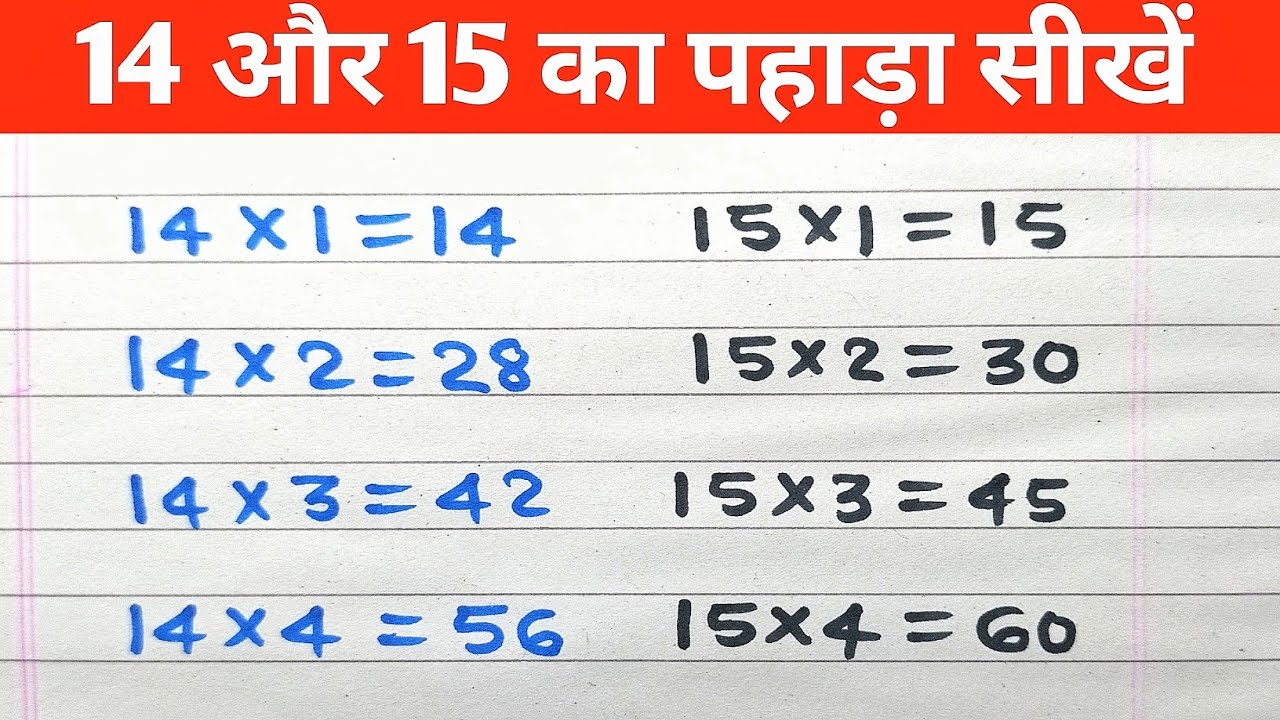 14 और 15 का पहाड़ा सीखें
14×1=14 15×1=15
14×2=28 15×2=30
14×3=42 15×3=45
14×4=56 15×4=60